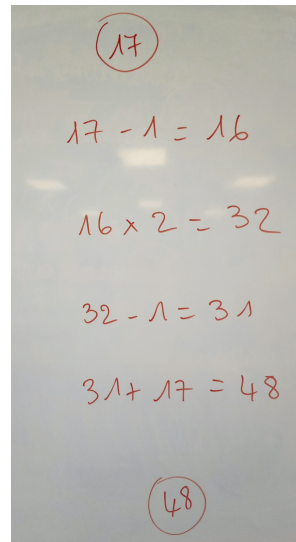 17
17 - 1 = 16
16 × 2 = 32
32 - 1 = 31
31 + 17 = 48
48